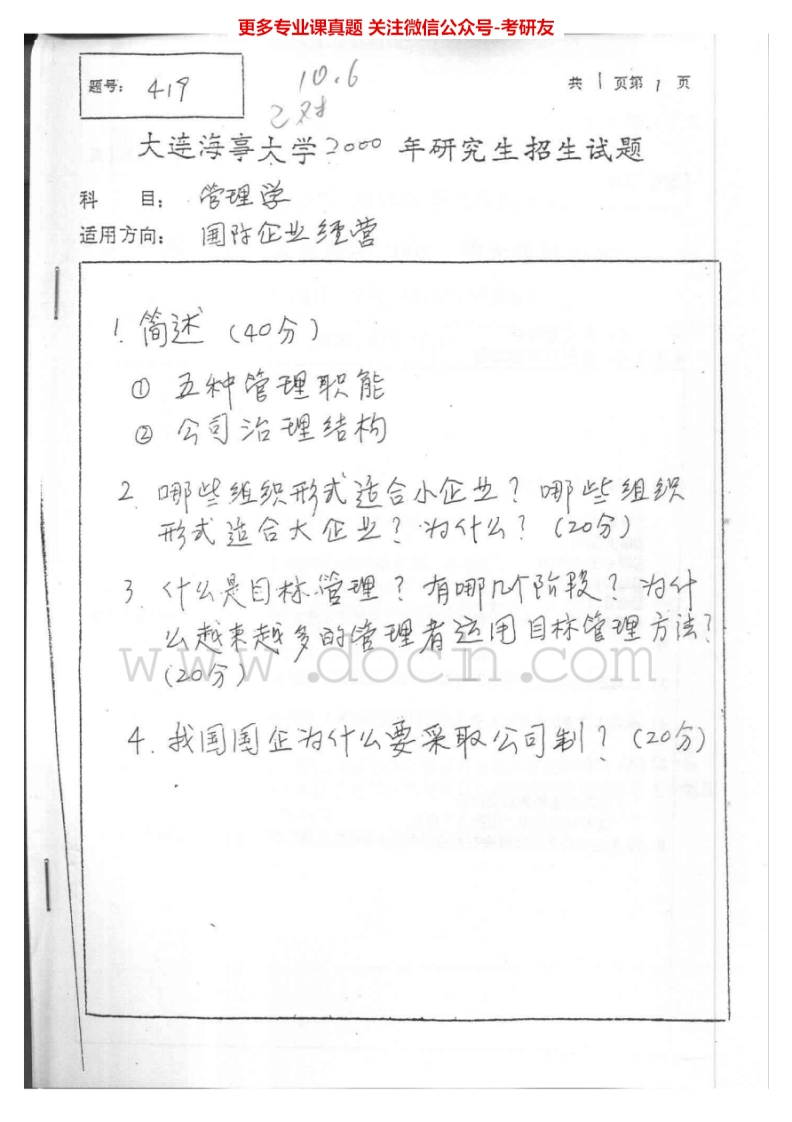 更多专业课真题 关注微信公众号-考研友
题号: 419
10.6
共 1 页第 1 页
大连海事大学2000年研究生招生试题
科 目: 管理学
适用方向: 国际企业经营
1. 简述 (40分)
① 五种管理职能
② 公司治理结构
2. 哪些组织形式适合小企业? 哪些组织
形式适合大企业? 为什么? (20分)
3. 什么是目标管理? 有哪几个阶段? 为什
么越来越多的管理者运用目标管理方法?
www.docin.com
(20分)
4. 我国国企为什么要采取公司制? (20分)